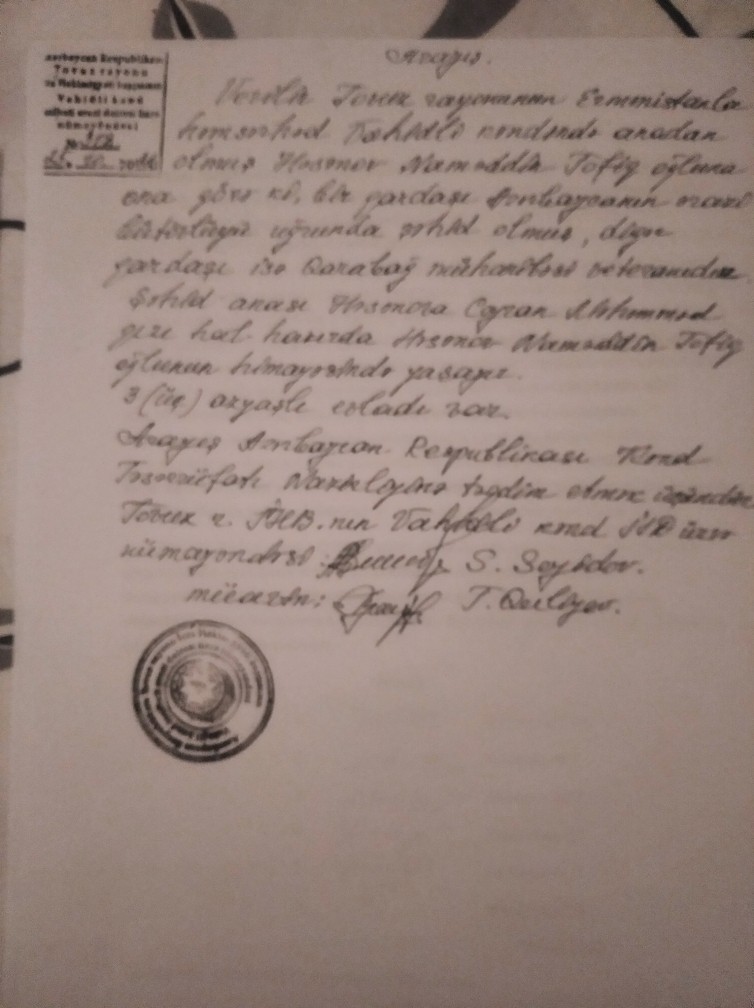 Azərbaycan Respublikası
Tovuz rayonu
İcra Hakimiyyəti başçısının
Vahidli kənd
inzibati ərazi dairəsi üzrə
nümayəndəsi
Arayış.
Verilir Tovuz rayonunun Ermənistanla
həmsərhəd Vahidli kəndində anadan
olmuş Həsənov Naməddin Tofiq oğluna
ona görə ki, bir qardaşı Azərbaycanın ərazi
bütövlüyü uğrunda şəhid olmuş, digər
qardaşı isə Qarabağ müharibəsi veteranıdır.
Şəhid anası Həsənova Ceyran Məhəmməd
qızı hal hazırda Həsənov Naməddin Tofiq
oğlunun himayəsində yaşayır.
3 (üç) azyaşlı evladı var.
Arayış Azərbaycan Respublikası Kənd
Təsərrüfatı Nazirliyinə təqdim etmək üçündür
Tovuz r. İHB.nın Vahidli kənd İƏD üzrə
nümayəndəsi: S. Seyidov.
mücavin: T. Quliyev.